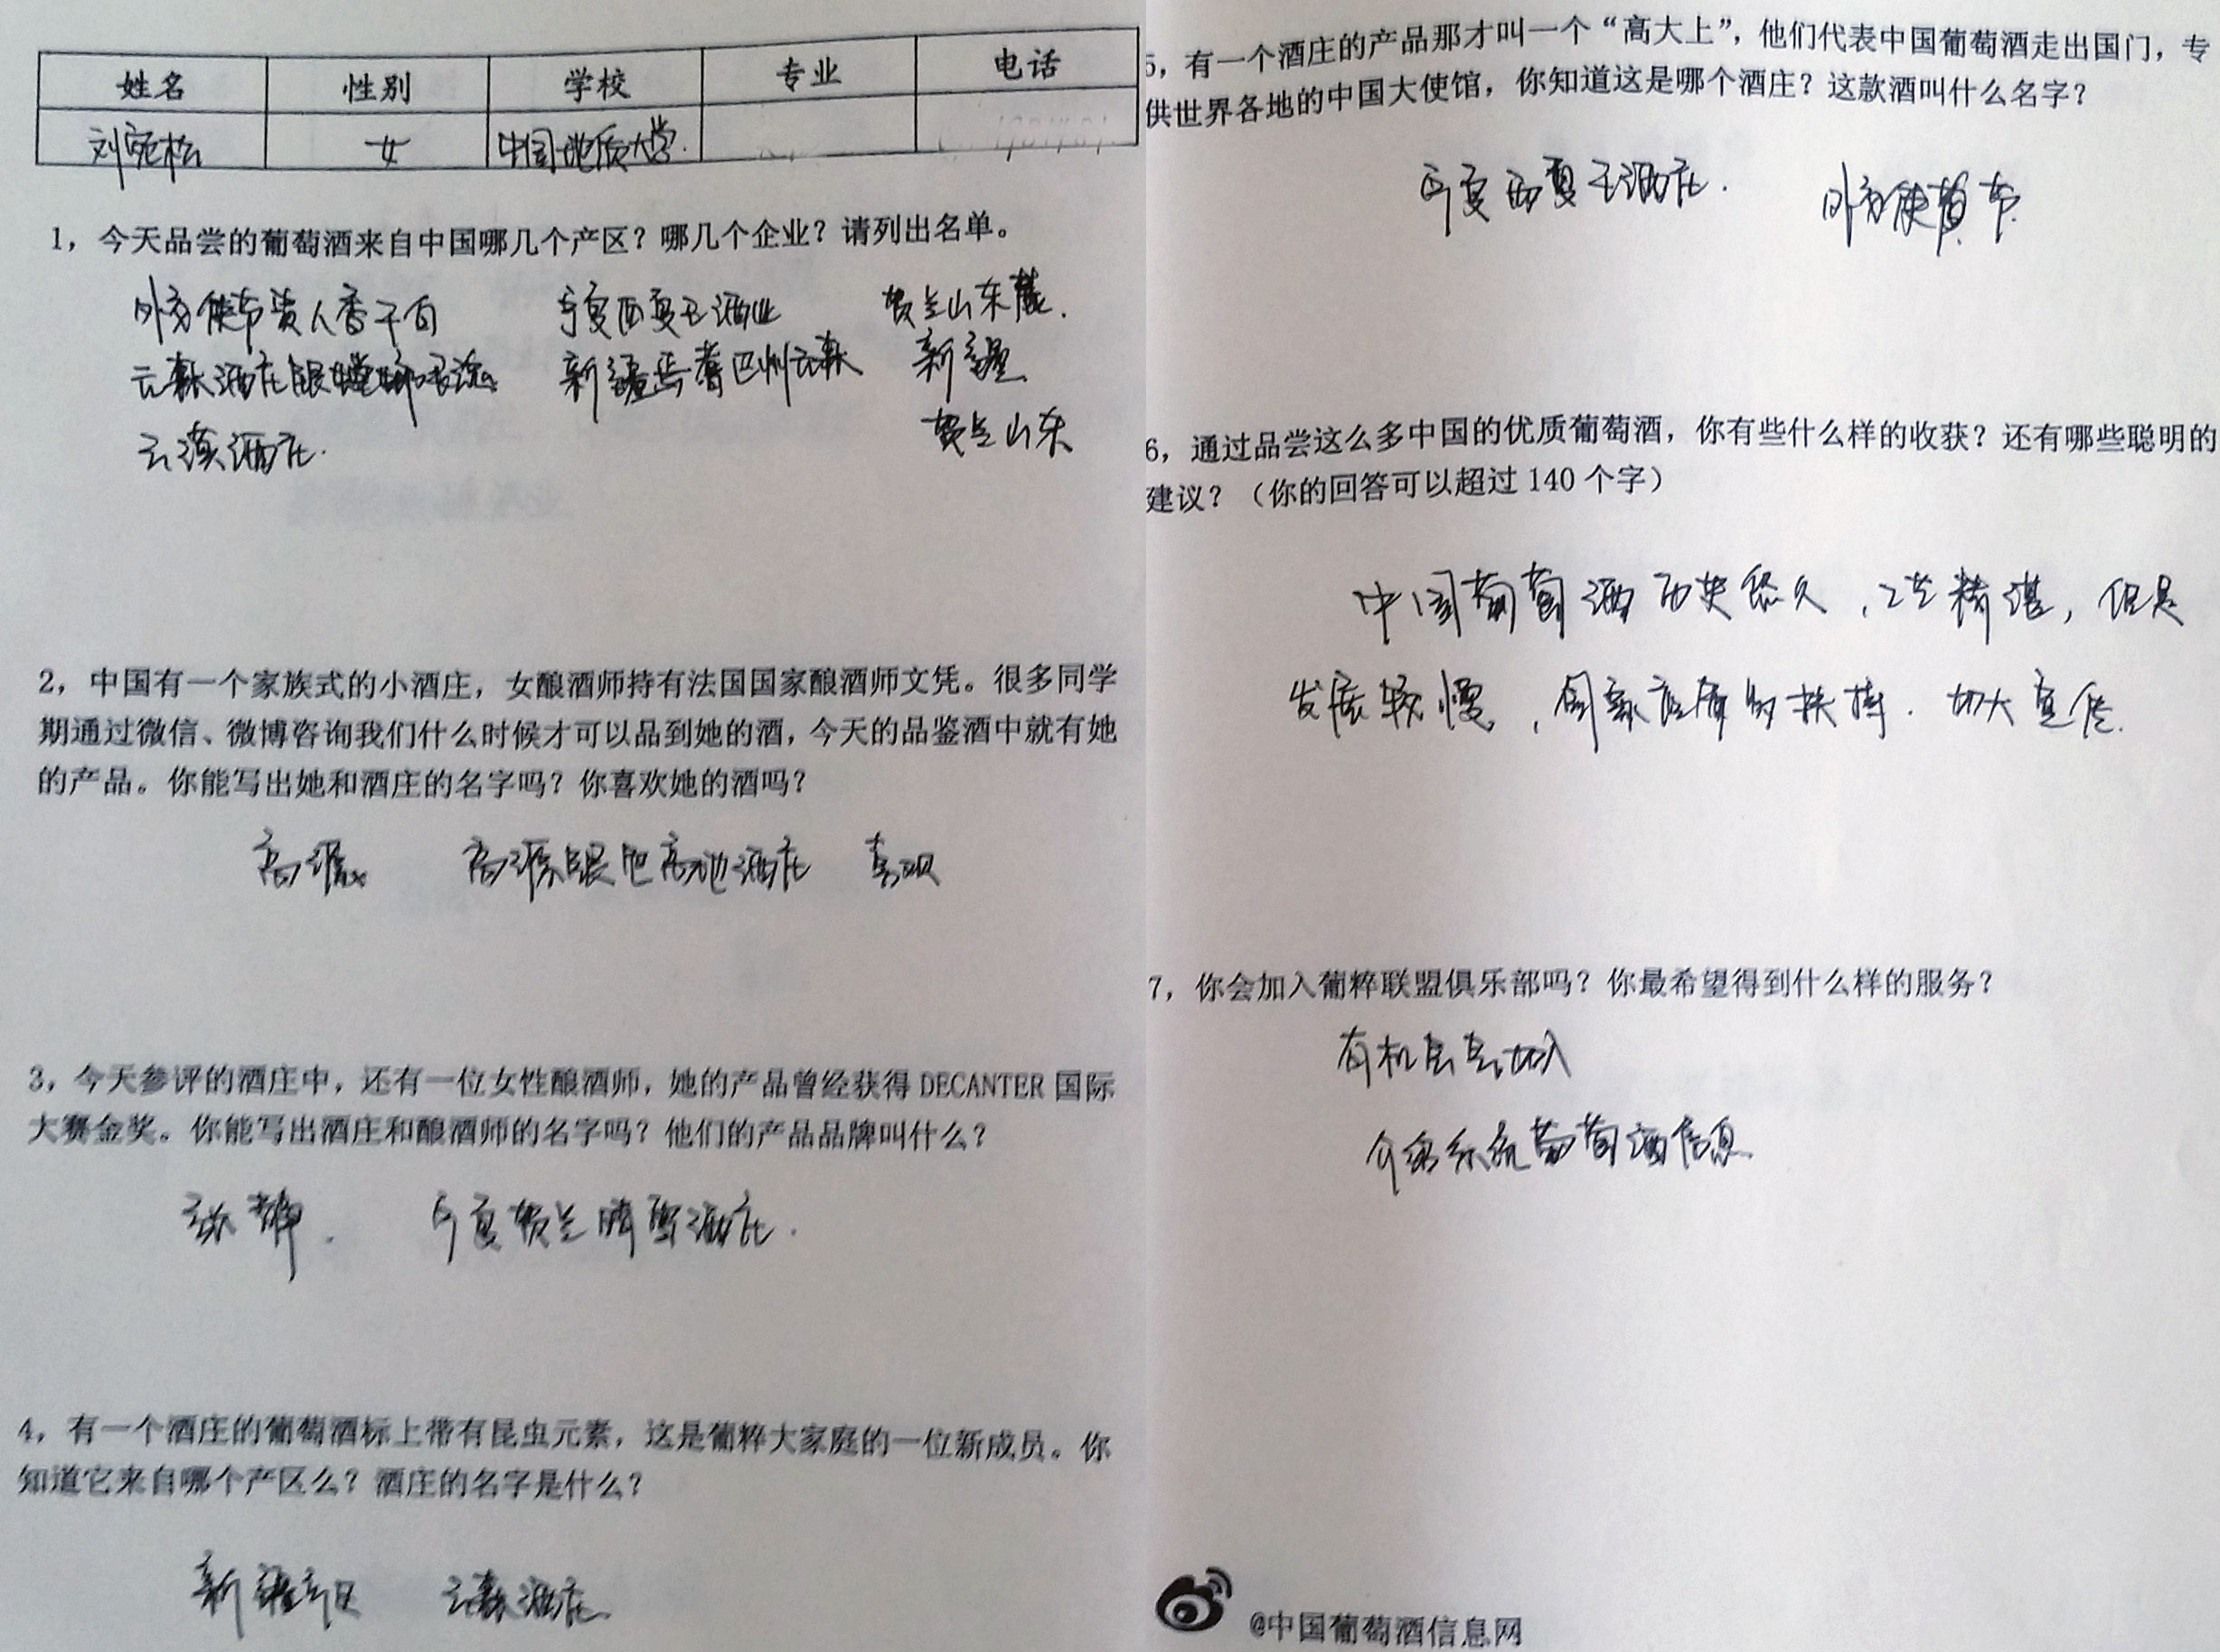 姓名 性别 学校 专业 电话
刘宛松 女 中国地质大学
1，今天品尝的葡萄酒来自中国哪几个产区？哪几个企业？请列出名单。
外交使节贵人香干白 宁夏西夏王酒业 贺兰山东麓.
酒庄 新疆焉耆巴州 新疆
云漠酒庄. 贺兰山东
2，中国有一个家族式的小酒庄，女酿酒师持有法国国家酿酒师文凭。很多同学
期通过微信、微博咨询我们什么时候才可以品到她的酒，今天的品鉴酒中就有她
的产品。你能写出她和酒庄的名字吗？你喜欢她的酒吗？
高源 高源银色高地酒庄 喜欢
3，今天参评的酒庄中，还有一位女性酿酒师，她的产品曾经获得 DECANTER 国际
大赛金奖。你能写出酒庄和酿酒师的名字吗？他们的产品品牌叫什么？
张静. 宁夏贺兰晴雪酒庄.
4，有一个酒庄的葡萄酒标上带有昆虫元素，这是葡粹大家庭的一位新成员。你
知道它来自哪个产区么？酒庄的名字是什么？
新疆 酒庄
5，有一个酒庄的产品那才叫一个“高大上”，他们代表中国葡萄酒走出国门，专
供世界各地的中国大使馆，你知道这是哪个酒庄？这款酒叫什么名字？
宁夏西夏王酒庄. 外交使节.
6，通过品尝这么多中国的优质葡萄酒，你有些什么样的收获？还有哪些聪明的
建议？（你的回答可以超过 140 个字）
中国葡萄酒历史悠久，工艺精湛，但是
发展较慢，国家应多扶持. 加大宣传.
7，你会加入葡粹联盟俱乐部吗？你最希望得到什么样的服务？
有机会会加入
介绍系统葡萄酒信息.
@中国葡萄酒信息网